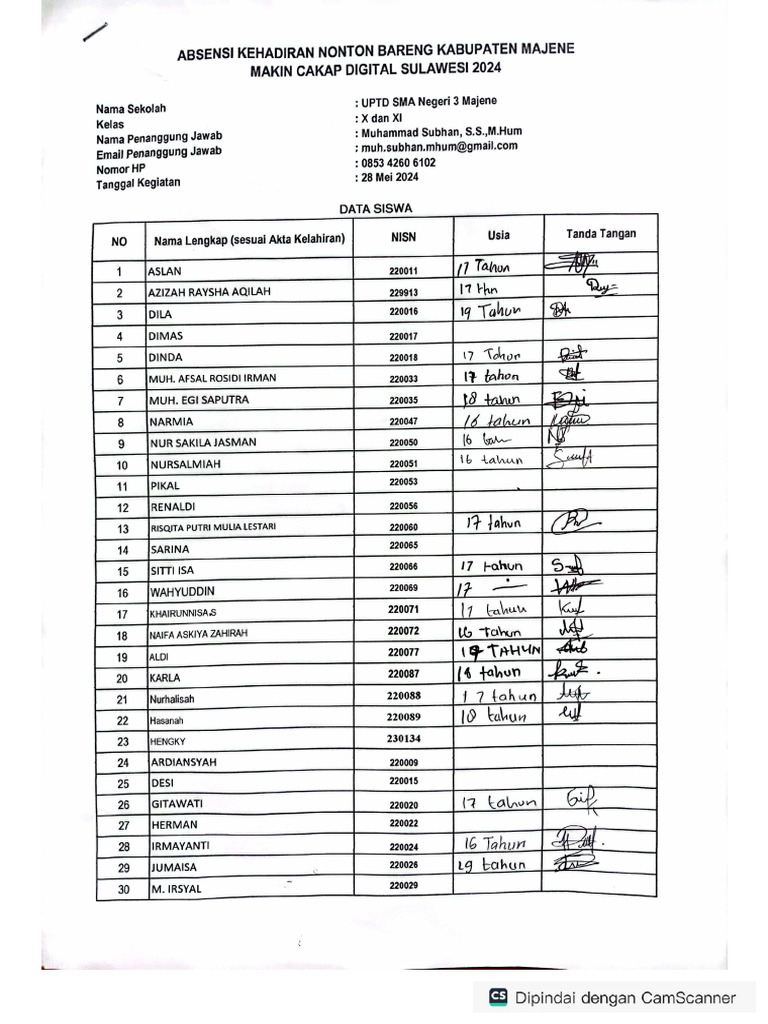 ABSENSI KEHADIRAN NONTON BARENG KABUPATEN MAJENE
MAKIN CAKAP DIGITAL SULAWESI 2024
Nama Sekolah : UPTD SMA Negeri 3 Majene
Kelas : X dan XI
Nama Penanggung Jawab : Muhammad Subhan, S.S.,M.Hum
Email Penanggung Jawab : muh.subhan.mhum@gmail.com
Nomor HP : 0853 4260 6102
Tanggal Kegiatan : 28 Mei 2024
DATA SISWA
NO Nama Lengkap (sesuai Akta Kelahiran) NISN Usia Tanda Tangan
1 ASLAN 220011 17 Tahun
2 AZIZAH RAYSHA AQILAH 229913 17 thn
3 DILA 220016 19 Tahun
4 DIMAS 220017
5 DINDA 220018 17 Tahun
6 MUH. AFSAL ROSIDI IRMAN 220033 17 tahun
7 MUH. EGI SAPUTRA 220035 18 tahun
8 NARMIA 220047 16 tahun
9 NUR SAKILA JASMAN 220050 16
10 NURSALMIAH 220051 16 tahun
11 PIKAL 220053
12 RENALDI 220056
13 RISQITA PUTRI MULIA LESTARI 220060 17 tahun
14 SARINA 220065
15 SITTI ISA 220066 17 tahun
16 WAHYUDDIN 220069 17
17 KHAIRUNNISA.S 220071 17 tahun
18 NAIFA ASKIYA ZAHIRAH 220072 16 Tahun
19 ALDI 220077 TAHUN
20 KARLA 220087 18 tahun
21 Nurhalisah 220088 17 tahun
22 Hasanah 220089 18 tahun
23 HENGKY 230134
24 ARDIANSYAH 220009
25 DESI 220015
26 GITAWATI 220020 17 tahun
27 HERMAN 220022
28 IRMAYANTI 220024 16 Tahun
29 JUMAISA 220026 tahun
30 M. IRSYAL 220029
CS Dipindai dengan CamScanner